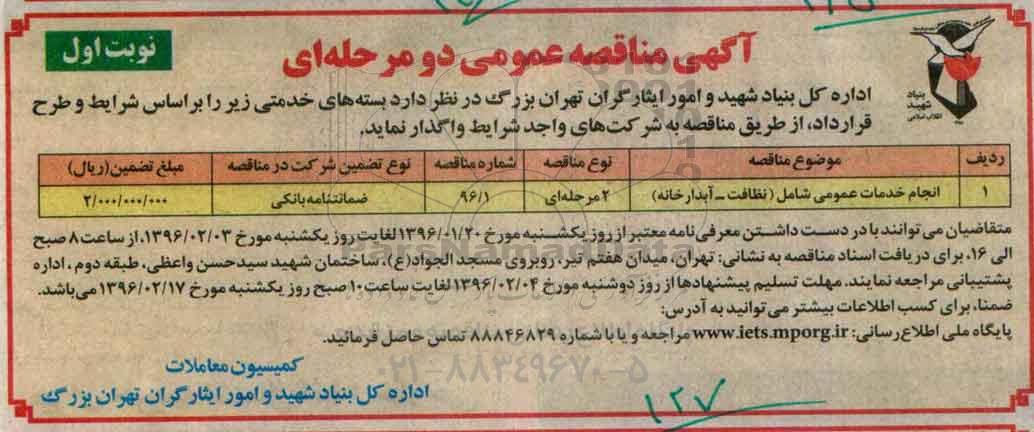 نوبت اول
آگهی مناقصه عمومی دو مرحله‌ای
بنیاد
شهید
انقلاب اسلامی
اداره کل بنیاد شهید و امور ایثارگران تهران بزرگ در نظر دارد بسته‌های خدمتی زیر را بر اساس شرایط و طرح
قرارداد، از طریق مناقصه به شرکت‌های واجد شرایط واگذار نماید.
ردیف موضوع مناقصه نوع مناقصه شماره مناقصه نوع تضمین شرکت در مناقصه مبلغ تضمین (ریال)
۱ انجام خدمات عمومی شامل (نظافت ــ آبدارخانه) ۲ مرحله‌ای ۹۶/۱ ضمانتنامه بانکی ۲/۰۰۰/۰۰۰/۰۰۰
متقاضیان می توانند با در دست داشتن معرفی نامه معتبر از روز یکشنبه مورخ ۱۳۹۶/۰۱/۲۰ لغایت روز یکشنبه مورخ ۱۳۹۶/۰۲/۰۳، از ساعت ۸ صبح
الی ۱۶، برای دریافت اسناد مناقصه به نشانی: تهران، میدان هفتم تیر، روبروی مسجد الجواد(ع)، ساختمان شهید سیدحسن واعظی، طبقه دوم، اداره
پشتیبانی مراجعه نمایند. مهلت تسلیم پیشنهادها از روز دوشنبه مورخ ۱۳۹۶/۰۲/۰۴ لغایت ساعت ۱۰ صبح روز یکشنبه مورخ ۱۳۹۶/۰۲/۱۷ می‌باشد.
ضمنا، برای کسب اطلاعات بیشتر می توانید به آدرس:
پایگاه ملی اطلاع رسانی: www.iets.mporg.ir مراجعه و یا با شماره ۸۸۸۴۶۸۲۹ تماس حاصل فرمائید.
۰۲۱-۸۸۳۴۹۶۷۰-۵
کمیسیون معاملات
اداره کل بنیاد شهید و امور ایثارگران تهران بزرگ
۱۲۷